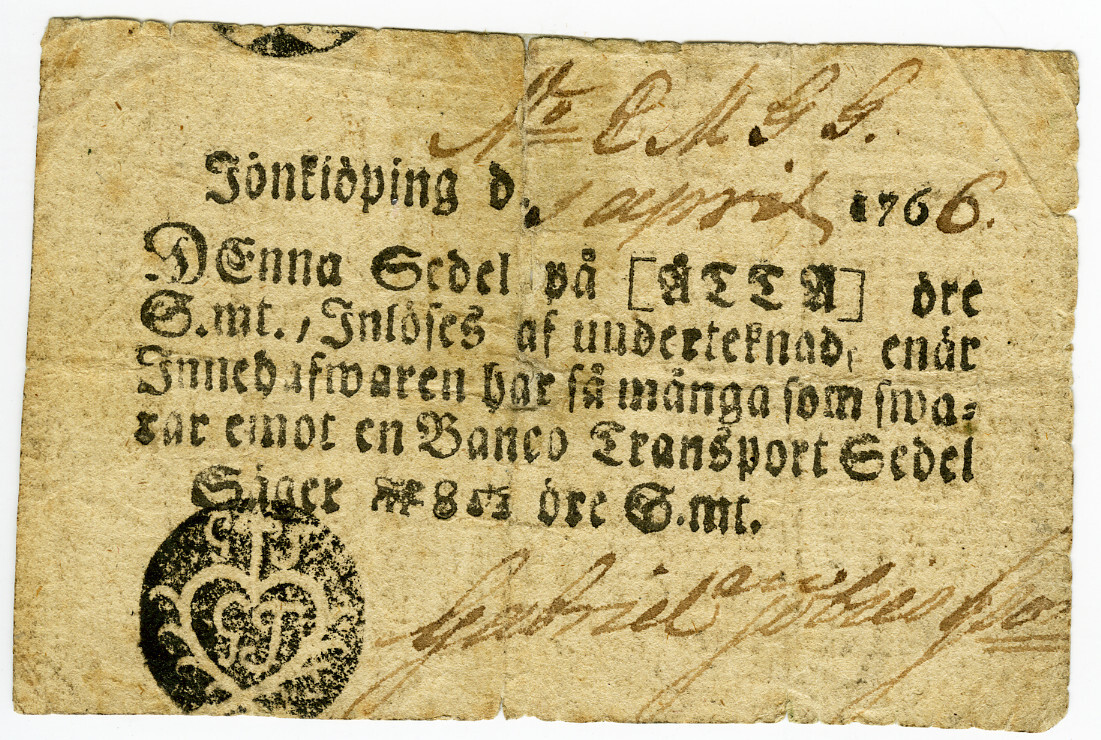 No C M G G.
Jönkiöping d. 1 april 1766.
DEnna Sedel på [ÅTTA] öre
S.mt., Inlöses af underteknad, enär
Innehafwaren har så många som swa-
rar emot en Banco Transport Sedel
Säger 8 öre S.mt.
Gabriel
GTS
GJ